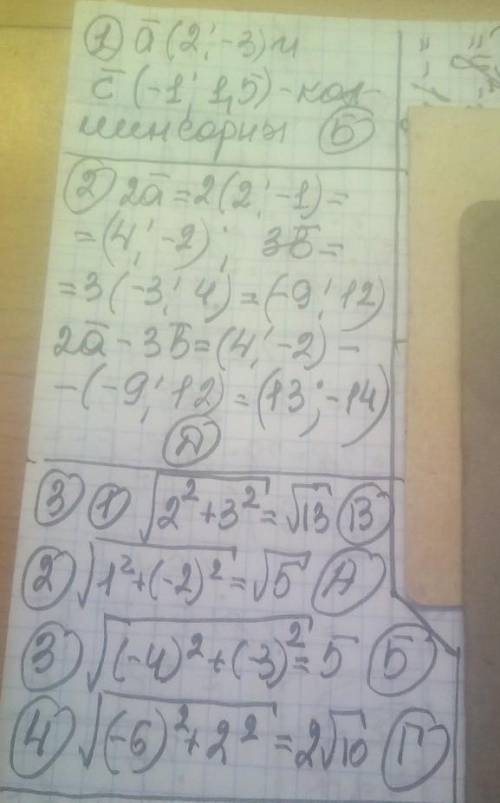 ① a̅ (2; -3) и
c̅ (-1; 1,5) - кол-
линеарны Б
② 2a̅ = 2(2; -1) =
= (4; -2); 3b̅ =
= 3(-3; 4) = (-9; 12)
2a̅ - 3b̅ = (4; -2) -
- (-9; 12) = (13; -14)
А
③ ① √(2² + 3²) = √13 В
② √(1² + (-2)²) = √5 А
③ √((-4)² + (-3)²) = 5 Б
④ √((-6)² + 2²) = 2√10 Г